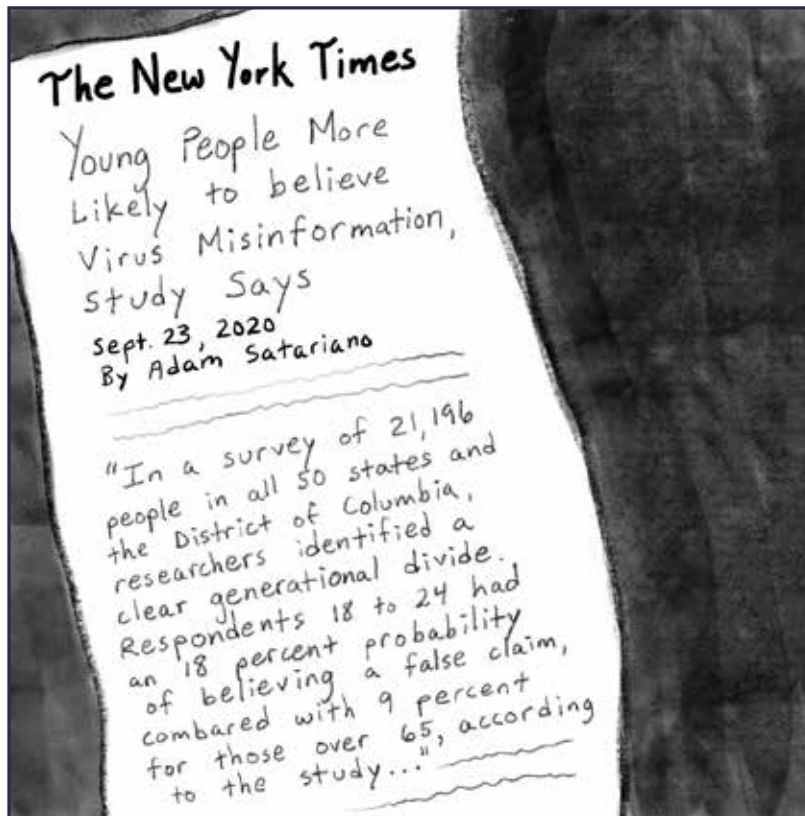 The New York Times
Young People More
Likely to believe
Virus Misinformation,
Study Says
Sept. 23, 2020
By Adam Satariano
"In a survey of 21,196
people in all 50 states and
the District of Columbia,
researchers identified a
clear generational divide.
Respondents 18 to 24 had
an 18 percent probability
of believing a false claim,
combared with 9 percent
for those over 65, according
to the study..."